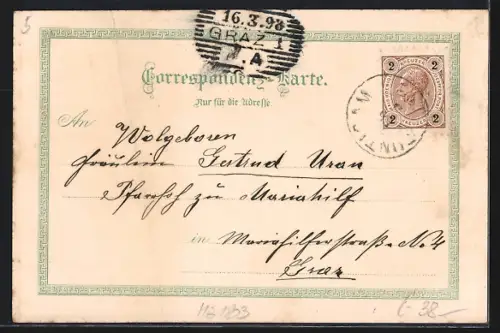 5
16.3.98
GRAZ 1
A
2 2
2 2
Correspondenz-Karte.
Nur für die Adresse
An
Wolgeboren
Fräulein Gertrud Uran
Pfarrhof zu Mariahilf
in Mariahilferstraße No 4
Graz
38-